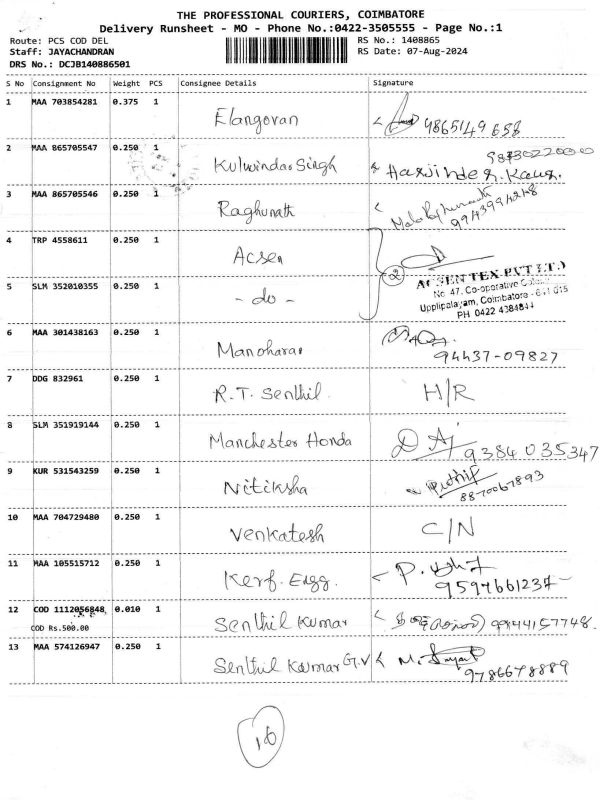 THE PROFESSIONAL COURIERS, COIMBATORE
Delivery Runsheet - MO - Phone No.:0422-3505555 - Page No.:1
Route: PCS COD DEL
RS No.: 1408865
Staff: JAYACHANDRAN
RS Date: 07-Aug-2024
DRS No.: DCJB140886501
S No Consignment No Weight PCS Consignee Details Signature
1 MAA 703854281 0.375 1 Elangovan 9865149658
2 MAA 865705547 0.250 1 Kulwindar Singh Harjinder. Kaur.
3 MAA 865705546 0.250 1 Raghunath 9943994248
4 TRP 4558611 0.250 1 Acsen
2
ACSEN TEX PVT LTD
5 SLM 352010355 0.250 1 - do -
No 47, Co-operative Colony
Upplipalayam, Coimbatore - 641 015
PH 0422 4384844
6 MAA 301438163 0.250 1 Manoharan 94437-09827
7 DDG 832961 0.250 1 R.T. Senthil H/R
8 SLM 351919144 0.250 1 Manchester Honda 9384035347
9 KUR 531543259 0.250 1 Nitiksha 8870067893
10 MAA 704729480 0.250 1 Venkatesh C/N
11 MAA 105515712 0.250 1 Kerf. Engg. 9597661237
12 COD 1112056848 0.010 1 Senthil Kumar 9944157748
COD Rs.500.00
13 MAA 574126947 0.250 1 Senthil Kumar G.V 9786678889
10